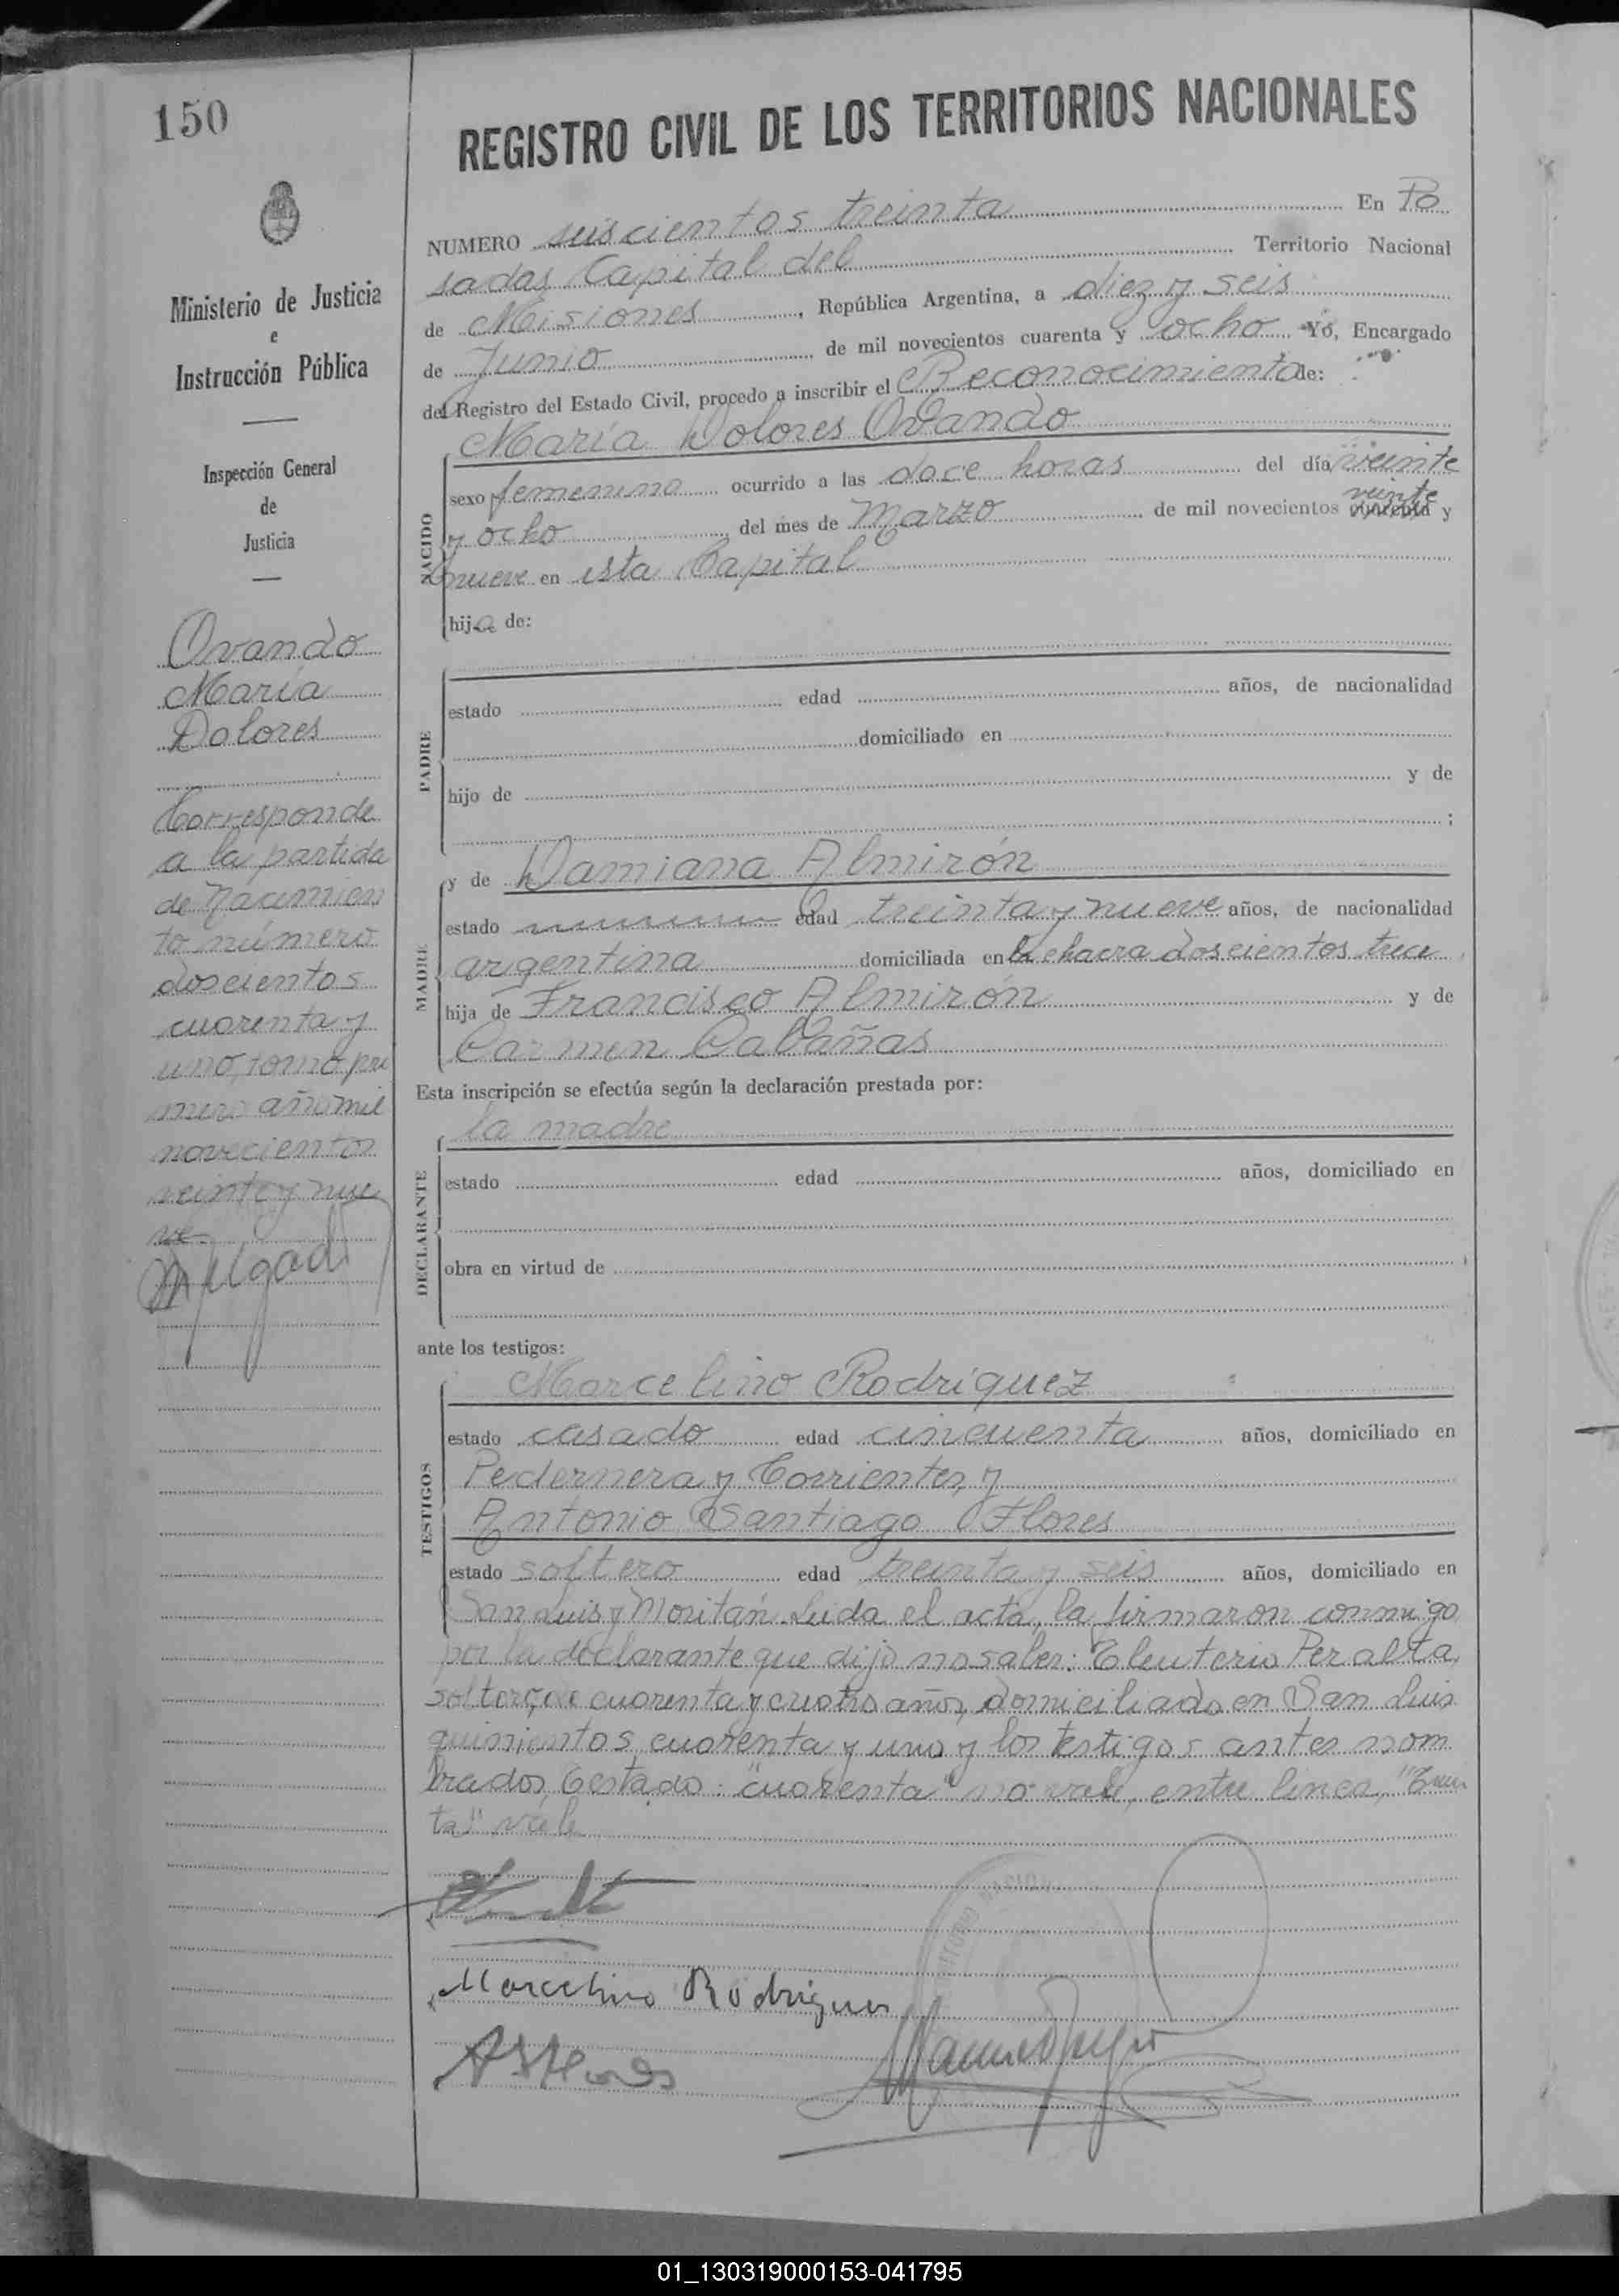 150
REGISTRO CIVIL DE LOS TERRITORIOS NACIONALES
Ministerio de Justicia
e
Instrucción Pública
Inspección General
de
Justicia
Ovando
María
Dolores
Corresponde
a la partida
de Nacimien
to número
doscientos
cuarenta y
uno, tomo pri
mero año mil
novecientos
veinte y nue
ve.
NUMERO seiscientos treinta En Po
sadas Capital del Territorio Nacional
de Misiones, República Argentina, a diez y seis
de Junio de mil novecientos cuarenta y ocho Yo, Encargado
del Registro del Estado Civil, procedo a inscribir el Reconocimiento de:
NACIDO
María Dolores Ovando
sexo femenino ocurrido a las doce horas del día veinte
veinte
y ocho del mes de Marzo de mil novecientos cuarenta y
nueve en esta Capital
hija de:
PADRE
estado edad años, de nacionalidad
domiciliado en
hijo de y de
;
MADRE
y de Damiana Almirón
estado edad treinta y nueve años, de nacionalidad
argentina domiciliada en la chacra doscientos trece
hija de Francisco Almirón y de
Carmen Cabañas
Esta inscripción se efectúa según la declaración prestada por:
DECLARANTE
la madre
estado edad años, domiciliado en
obra en virtud de
ante los testigos:
TESTIGOS
Marcelino Rodríguez
estado casado edad cincuenta años, domiciliado en
Pedernera y Corrientes, y
Antonio Santiago Flores
estado soltero edad treinta y seis años, domiciliado en
San Luis y Moritán. Leida el acta, la firmaron conmigo
por la declarante que dijo no saber: Eleuterio Peralta,
soltero, de cuarenta y cuatro años, domiciliado en San Luis
quinientos cuarenta y uno y los testigos antes nom
brados, testado: "cuarenta" no vale, entre linea,
vale
Marcelino Rodriguez
A S Flores
01_130319000153-041795